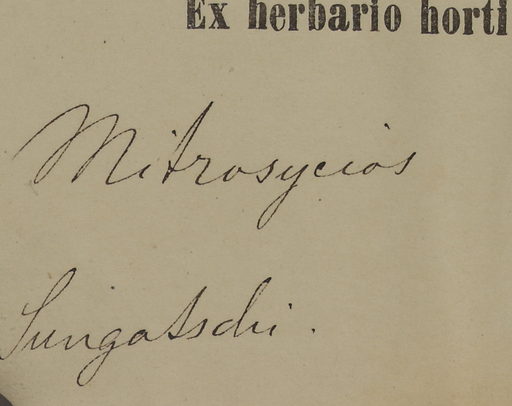 Ex herbario horti
Mitrosycios
Sungatschi.